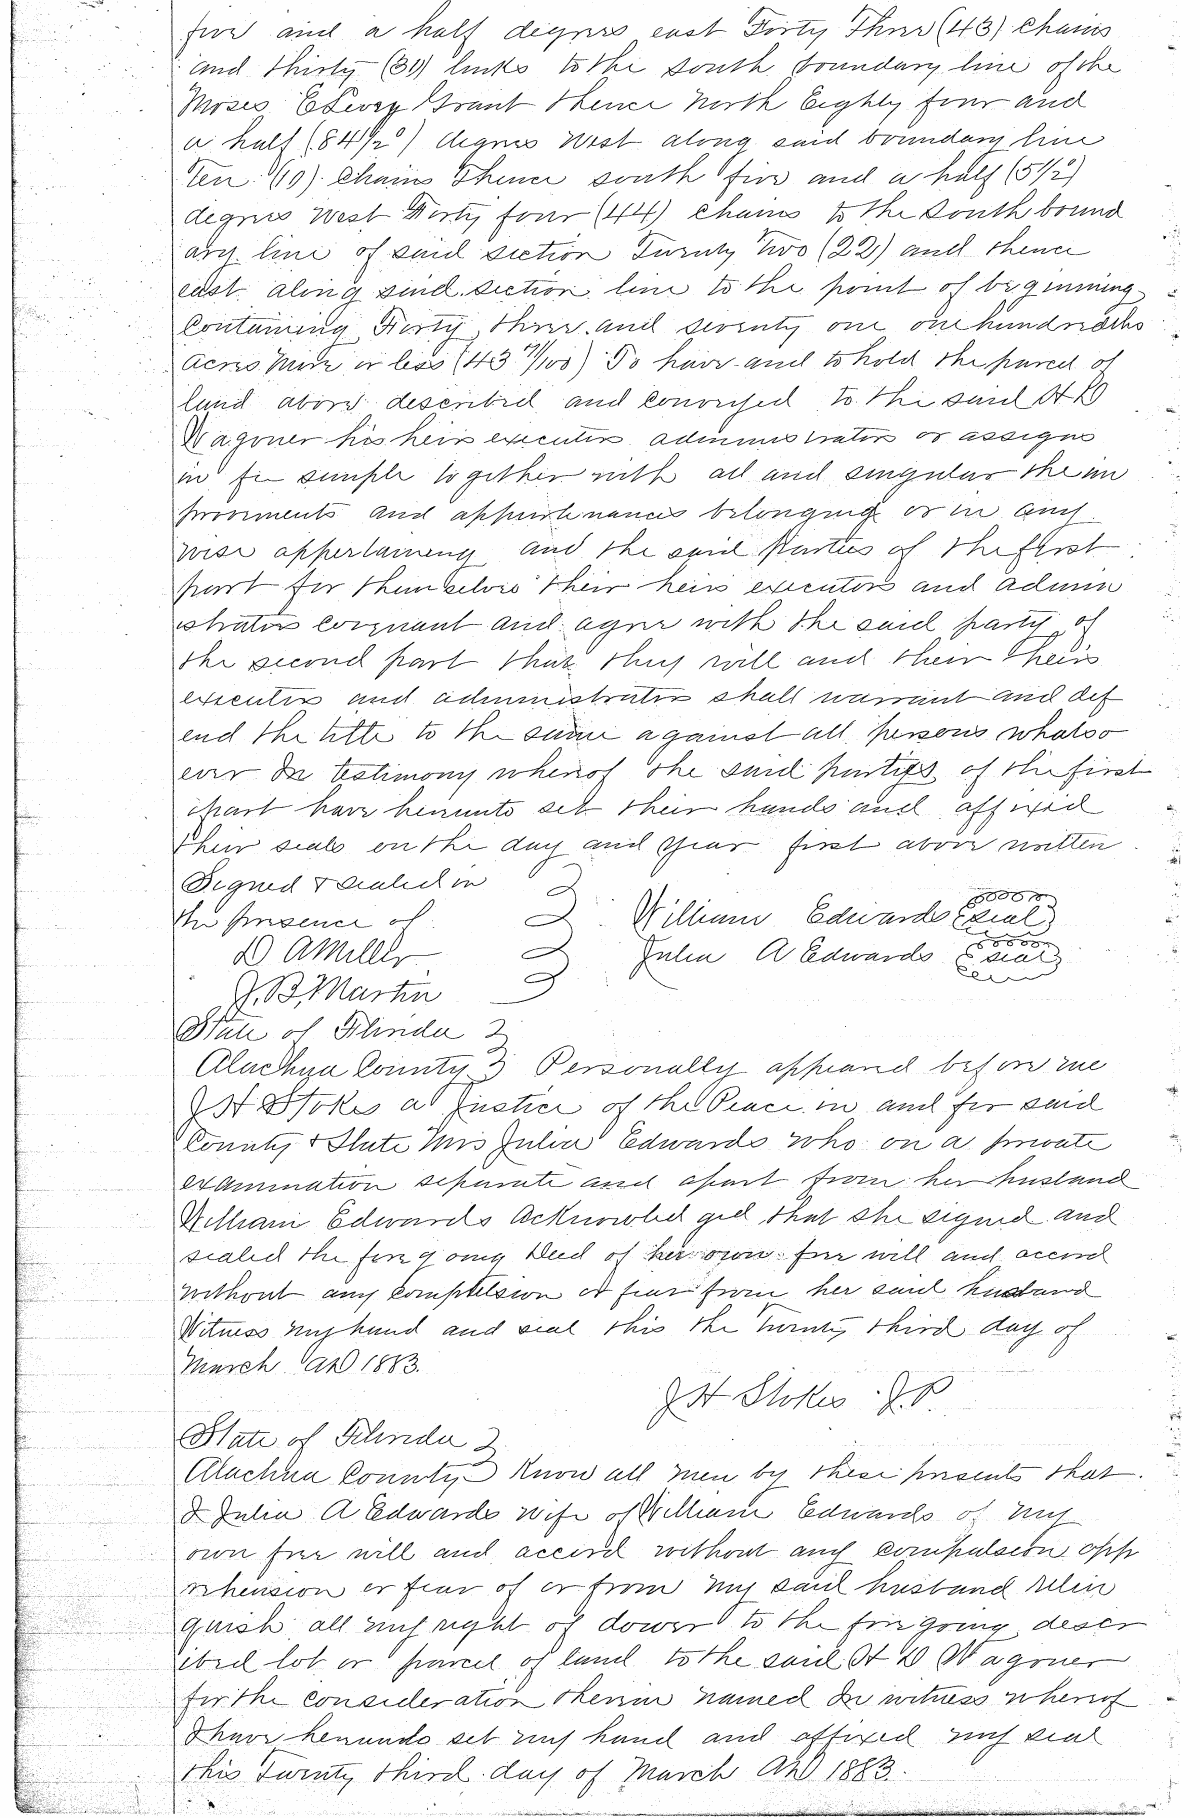 five and a half degrees east Forty Three (43) chains
and thirty (30) links to the south boundary line of the
Moses E Levy Grant thence North Eighty four and
a half (84 1/2°) degrees West along said boundary line
Ten (10) Chains Thence south five and a half (5 1/2°)
degrees West Forty four (44) chains to the South bound
ary line of said section Twenty Two (22) and thence
east along said section line to the point of beginning
Containing Forty three and seventy one one hundredths
acres More or less (43 71/100) To have and to hold the parcel of
land above described and conveyed to the said H D
Wagoner his heirs executors administrators or assigns
in fee simple together with all and singular the im
provements and appurtenances belonging or in any
wise appertaining and the said Parties of the first
part for themselves their heirs executors and admin
istrators covenant and agree with the said party of
the second part that they will and their heirs
executors and administrators shall warrant and def
end the title to the same against all persons whatso
ever In testimony whereof the said parties of the first
part have hereunto set their hands and affixed
their seals on the day and year first above written
Signed & sealed in
the presence of William Edwards seal
D A Miller Julia A Edwards seal
J. B. Martin
State of Florida
Alachua County Personally appeared before me
J H Stokes a Justice of the Peace in and for said
County & State Mrs Julia Edwards who on a private
examination separate and apart from her husband
William Edwards Acknowledged that she signed and
sealed the foregoing Deed of her own free will and accord
without any compulsion or fear from her said husband
Witness my hand and seal this the Twenty third day of
March AD 1883.
J H Stokes J. P.
State of Florida
Alachua County Know all men by these presents that
I Julia A Edwards wife of William Edwards of my
own free will and accord without any compulsion app
rehension or fear of or from my said husband relin
quish all my right of dower to the foregoing descr
ibed lot or parcel of land to the said H D Wagoner
for the consideration therein named In witness whereof
I have hereunto set my hand and affixed my seal
this Twenty third day of March AD 1883.